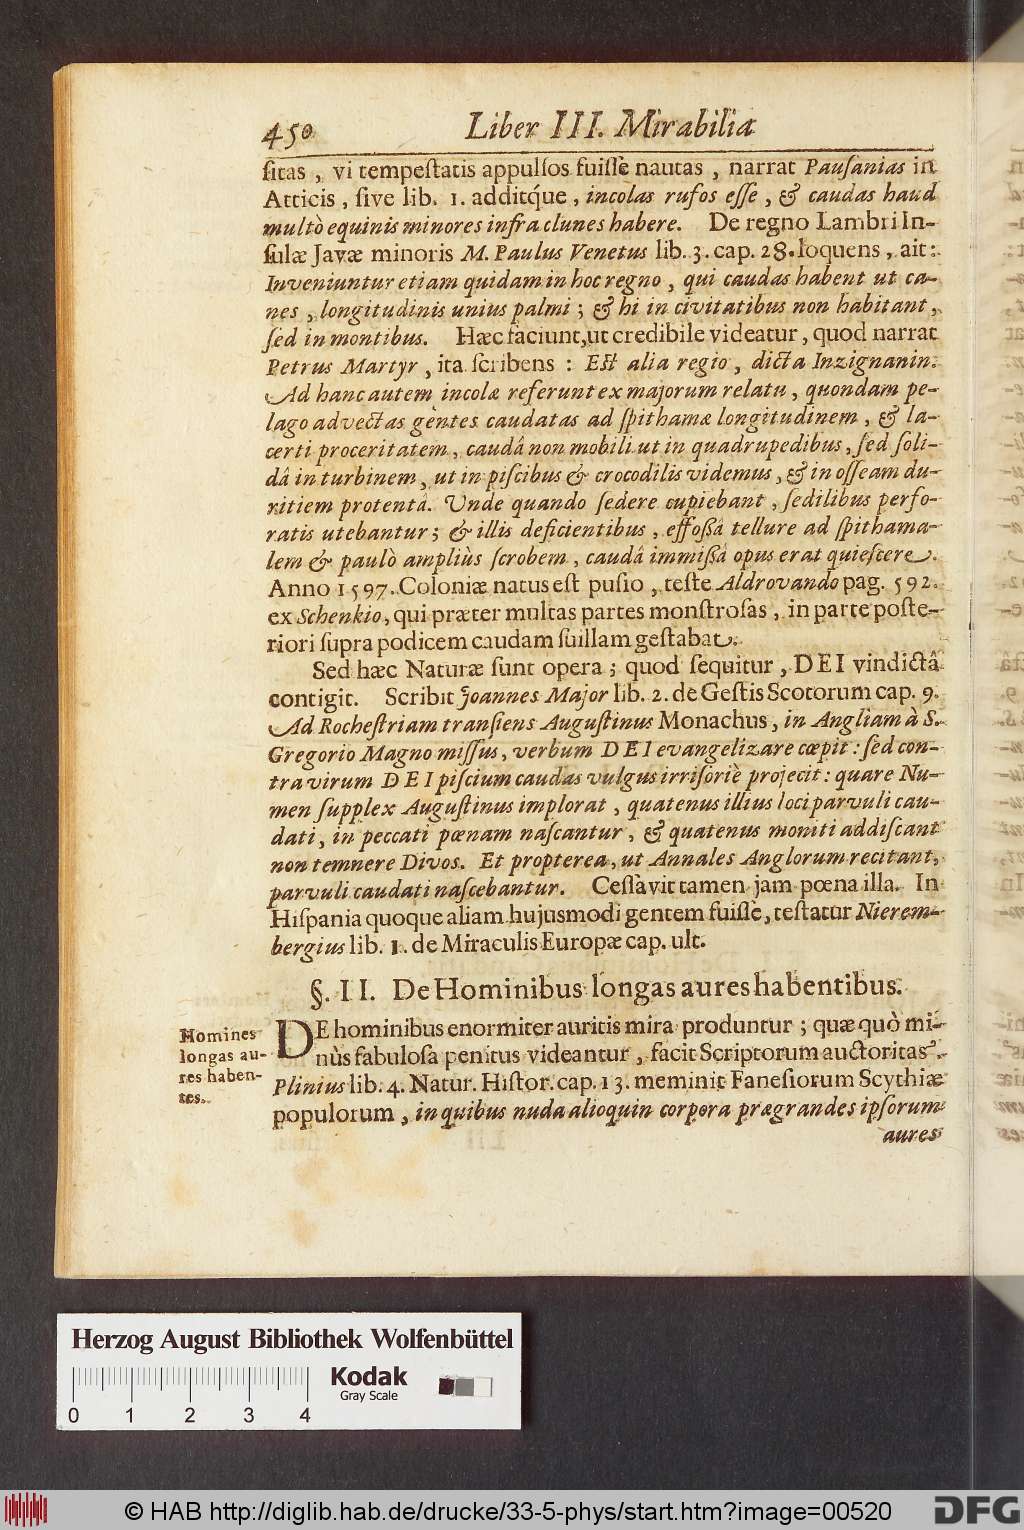 450 Liber III. Mirabilia
ſitas, vi tempeſtatis appulſos fuiſſe nautas, narrat Pauſanias in
Atticis, ſive lib. 1. additq́ue, incolas rufos eſſe, & caudas haud
multò equinis minores infra clunes habere. De regno Lambri In-
ſulæ Javæ minoris M. Paulus Venetus lib. 3. cap. 28. loquens, ait:
Inveniuntur etiam quidam in hoc regno, qui caudas habent ut ca-
nes, longitudinis unius palmi; & hi in civitatibus non habitant,
ſed in montibus. Hæc faciunt, ut credibile videatur, quod narrat
Petrus Martyr, ita ſcribens: Eſt alia regio, dicta Inzignanin.
Ad hanc autem incolæ referunt ex majorum relatu, quondam pe-
lago advectas gentes caudatas ad ſpithamæ longitudinem, & la-
certi proceritatem, caudâ non mobili ut in quadrupedibus, ſed ſoli-
dâ in turbinem, ut in piſcibus & crocodilis videmus, & in oſſeam du-
ritiem protentâ. Unde quando ſedere cupiebant, ſedilibus perfo-
ratis utebantur; & illis deficientibus, effoßâ tellure ad ſpithama-
lem & paulò ampliùs ſcrobem, caudâ immißâ opus erat quieſcere.
Anno 1597. Coloniæ natus eſt puſio, teſte Aldrovando pag. 592.
ex Schenkio, qui præter multas partes monſtroſas, in parte poſte-
riori ſupra podicem caudam ſuillam geſtabat.
Sed hæc Naturæ ſunt opera; quod ſequitur, DEI vindictâ
contigit. Scribit Joannes Major lib. 2. de Geſtis Scotorum cap. 9.
Ad Rocheſtriam tranſiens Auguſtinus Monachus, in Angliam à S.
Gregorio Magno miſſus, verbum DEI evangelizare cœpit: ſed con-
tra virum DEI piſcium caudas vulgus irriſoriè projecit: quare Nu-
men ſupplex Auguſtinus implorat, quatenus illius loci parvuli cau-
dati, in peccati pœnam naſcantur, & quatenus moniti addiſcant
non temnere Divos. Et propterea, ut Annales Anglorum recitant,
parvuli caudati naſcebantur. Ceſſavit tamen jam pœna illa. In
Hiſpania quoque aliam hujusmodi gentem fuiſſe, teſtatur Nierem-
bergius lib. 1. de Miraculis Europæ cap. ult.
§. II. De Hominibus longas aures habentibus.
Homines
longas au-
res haben-
tes.
DE hominibus enormiter auritis mira produntur; quæ quò mi-
nùs fabuloſa penitus videantur, facit Scriptorum auctoritas.
Plinius lib. 4. Natur. Hiſtor. cap. 13. meminit Faneſiorum Scythiæ
populorum, in quibus nuda alioquin corpora prægrandes ipſorum
aures
Herzog August Bibliothek Wolfenbüttel
Kodak
Gray Scale
0 1 2 3 4
© HAB http://diglib.hab.de/drucke/33-5-phys/start.htm?image=00520
DFG